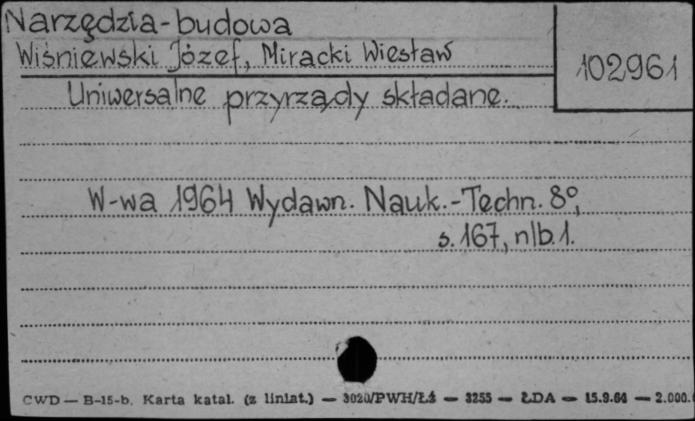 Narzędzia-budowa
Wiśniewski Józef, Miracki Wiesław
102961
Uniwersalne przyrządy składane.
W-wa 1964 Wydawn. Nauk.-Techn. 8°,
s. 167, nlb. 1.
CWD — B-15-b. Karta katal. (z liniat.) — 3020/PWH/Łś — 3255 — ŁDA — 15.9.64 — 2.000.